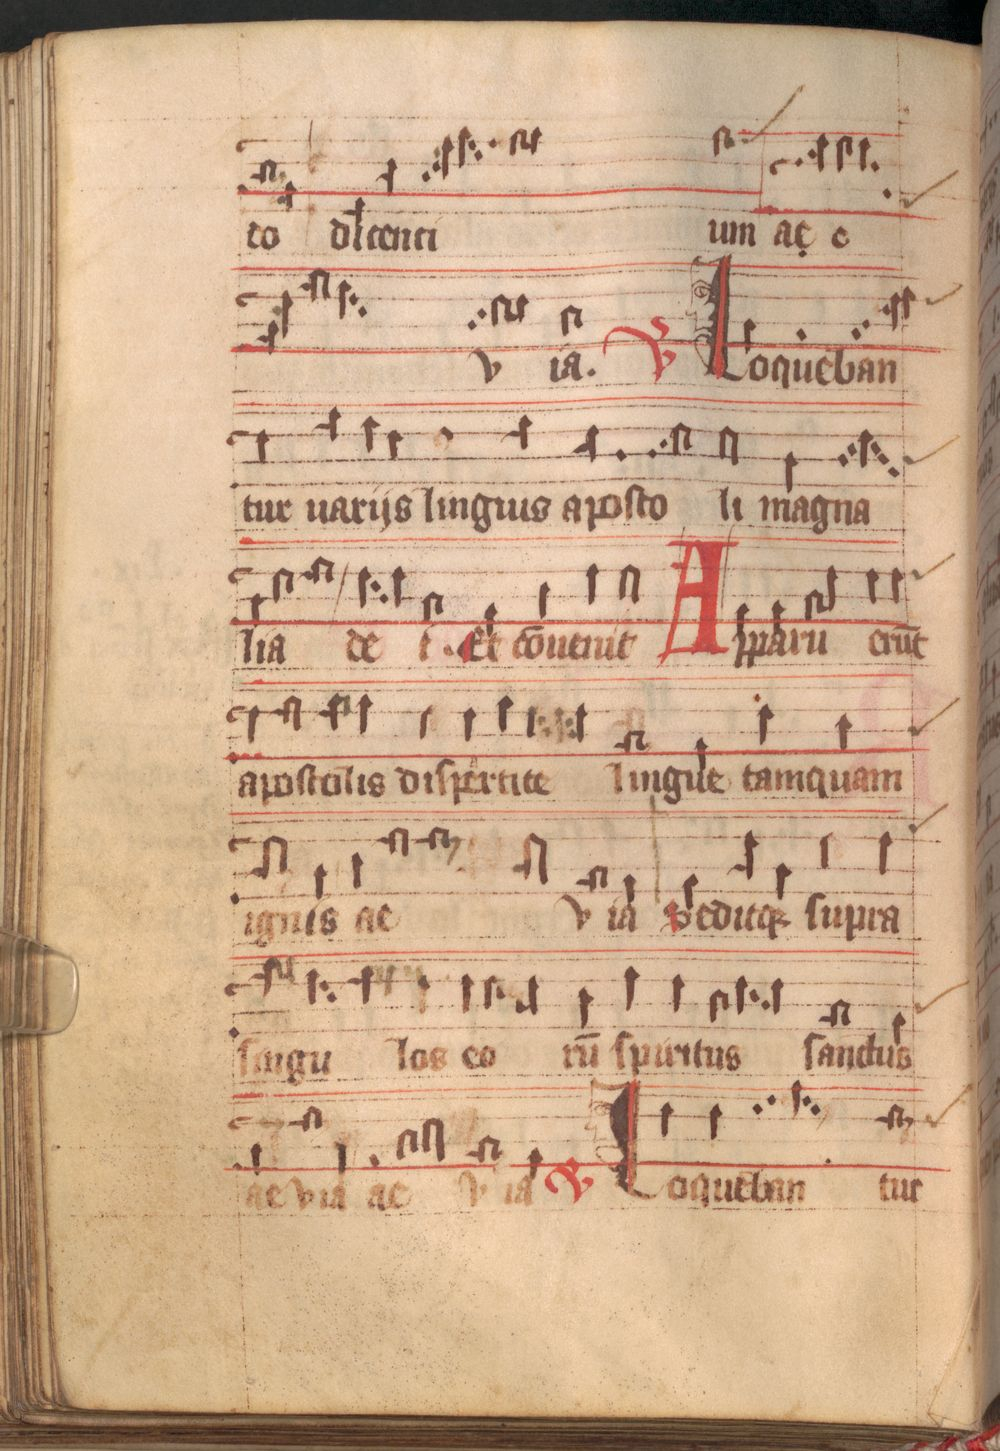 eo dicenti um ae e
v ia. V Loqueban
tur uarijs linguis aposto li magna
lia de i. Et cōuenit Apparu erūt
apostolis dispertite lingue tamquam
ignis ae v ia Seditqꝫ supra
singu los eo rū spiritus sanctus
ae via ae v ia V Loqueban tur